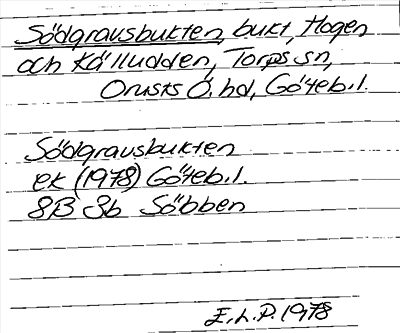 Södgravsbukten, bukt, Mogen
och Källudden, Torps sn,
Orusts Ö. hd, Göteb. l.
Södgravsbukten
ek (1978) Göteb. l.
8B 3b Söbben
E.L.P. 1978